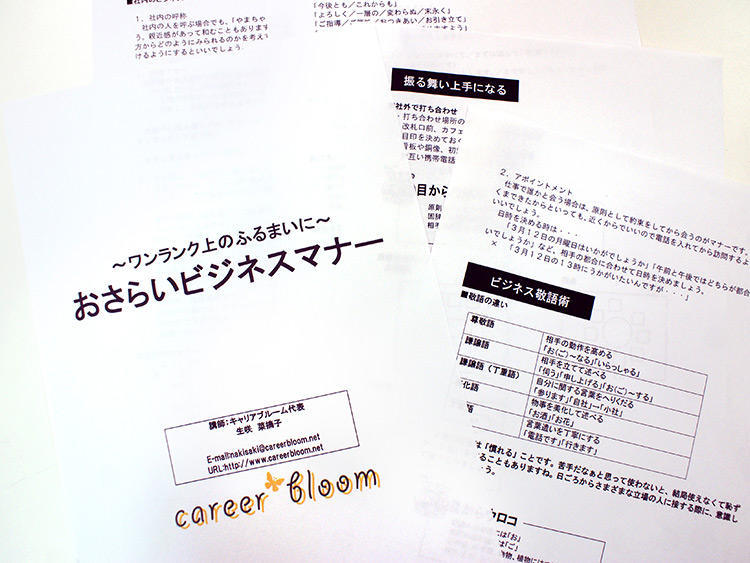 1．社内の呼称
社内の人を呼ぶ場合でも、「やまちゃ
う。親近感があって和むこともあります
方からどのようにみられるのかを考え
けるようにするといいでしょう。
「今後とも／これからも」
「よろしく／一層の／変わらぬ／末永く」
「ご指導／ご鞭撻／おつきあい／お引き立て」
振る舞い上手になる
社外で打ち合わせ
・打ち合わせ場所の
改札口前、カフェ
目印を決めておく
看板や銅像、初
互い携帯電話
目から
原則
相手
2．アポイントメント
仕事で誰かと会う場合は、原則として約束をしてから会うのがマナーです。
くまできたからといっても、近くからでいいので電話を入れてから訪問するよ
いいでしょう。
日時を決める時は・・・
「3月12日の月曜日はいかがでしょうか」「午前と午後ではどちらが都合
いでしょうか」など、相手の都合に合わせて日時を決めましょう。
× 「3月12日の13時にうかがいたいんですが・・・」
ビジネス敬語術
■敬語の違い
尊敬語
相手の動作を高める
「お(ご)～なる」「いらっしゃる」
謙譲語
相手を立てて述べる
「伺う」「申し上げる」「お(ご)～する」
謙譲語（丁重語）
自分に関する言葉をへりくだる
「参ります」「自社」→「小社」
化語
物事を美化して述べる
「お酒」「お花」
語
言葉遣いを丁寧にする
「電話です」「行きます」
は「慣れる」ことです。苦手だなぁと思って使わないと、結局使えなくて恥ず
ることもありますね。日ごろからさまざまな立場の人に接する際に、意識し
ウロコ
には「お」
は「ご」
～ワンランク上のふるまいに～
おさらいビジネスマナー
講師：キャリアブルーム代表
生咲 菜摘子
E-mail:nakisaki@careerbloom.net
URL:http://www.careerbloom.net
career bloom